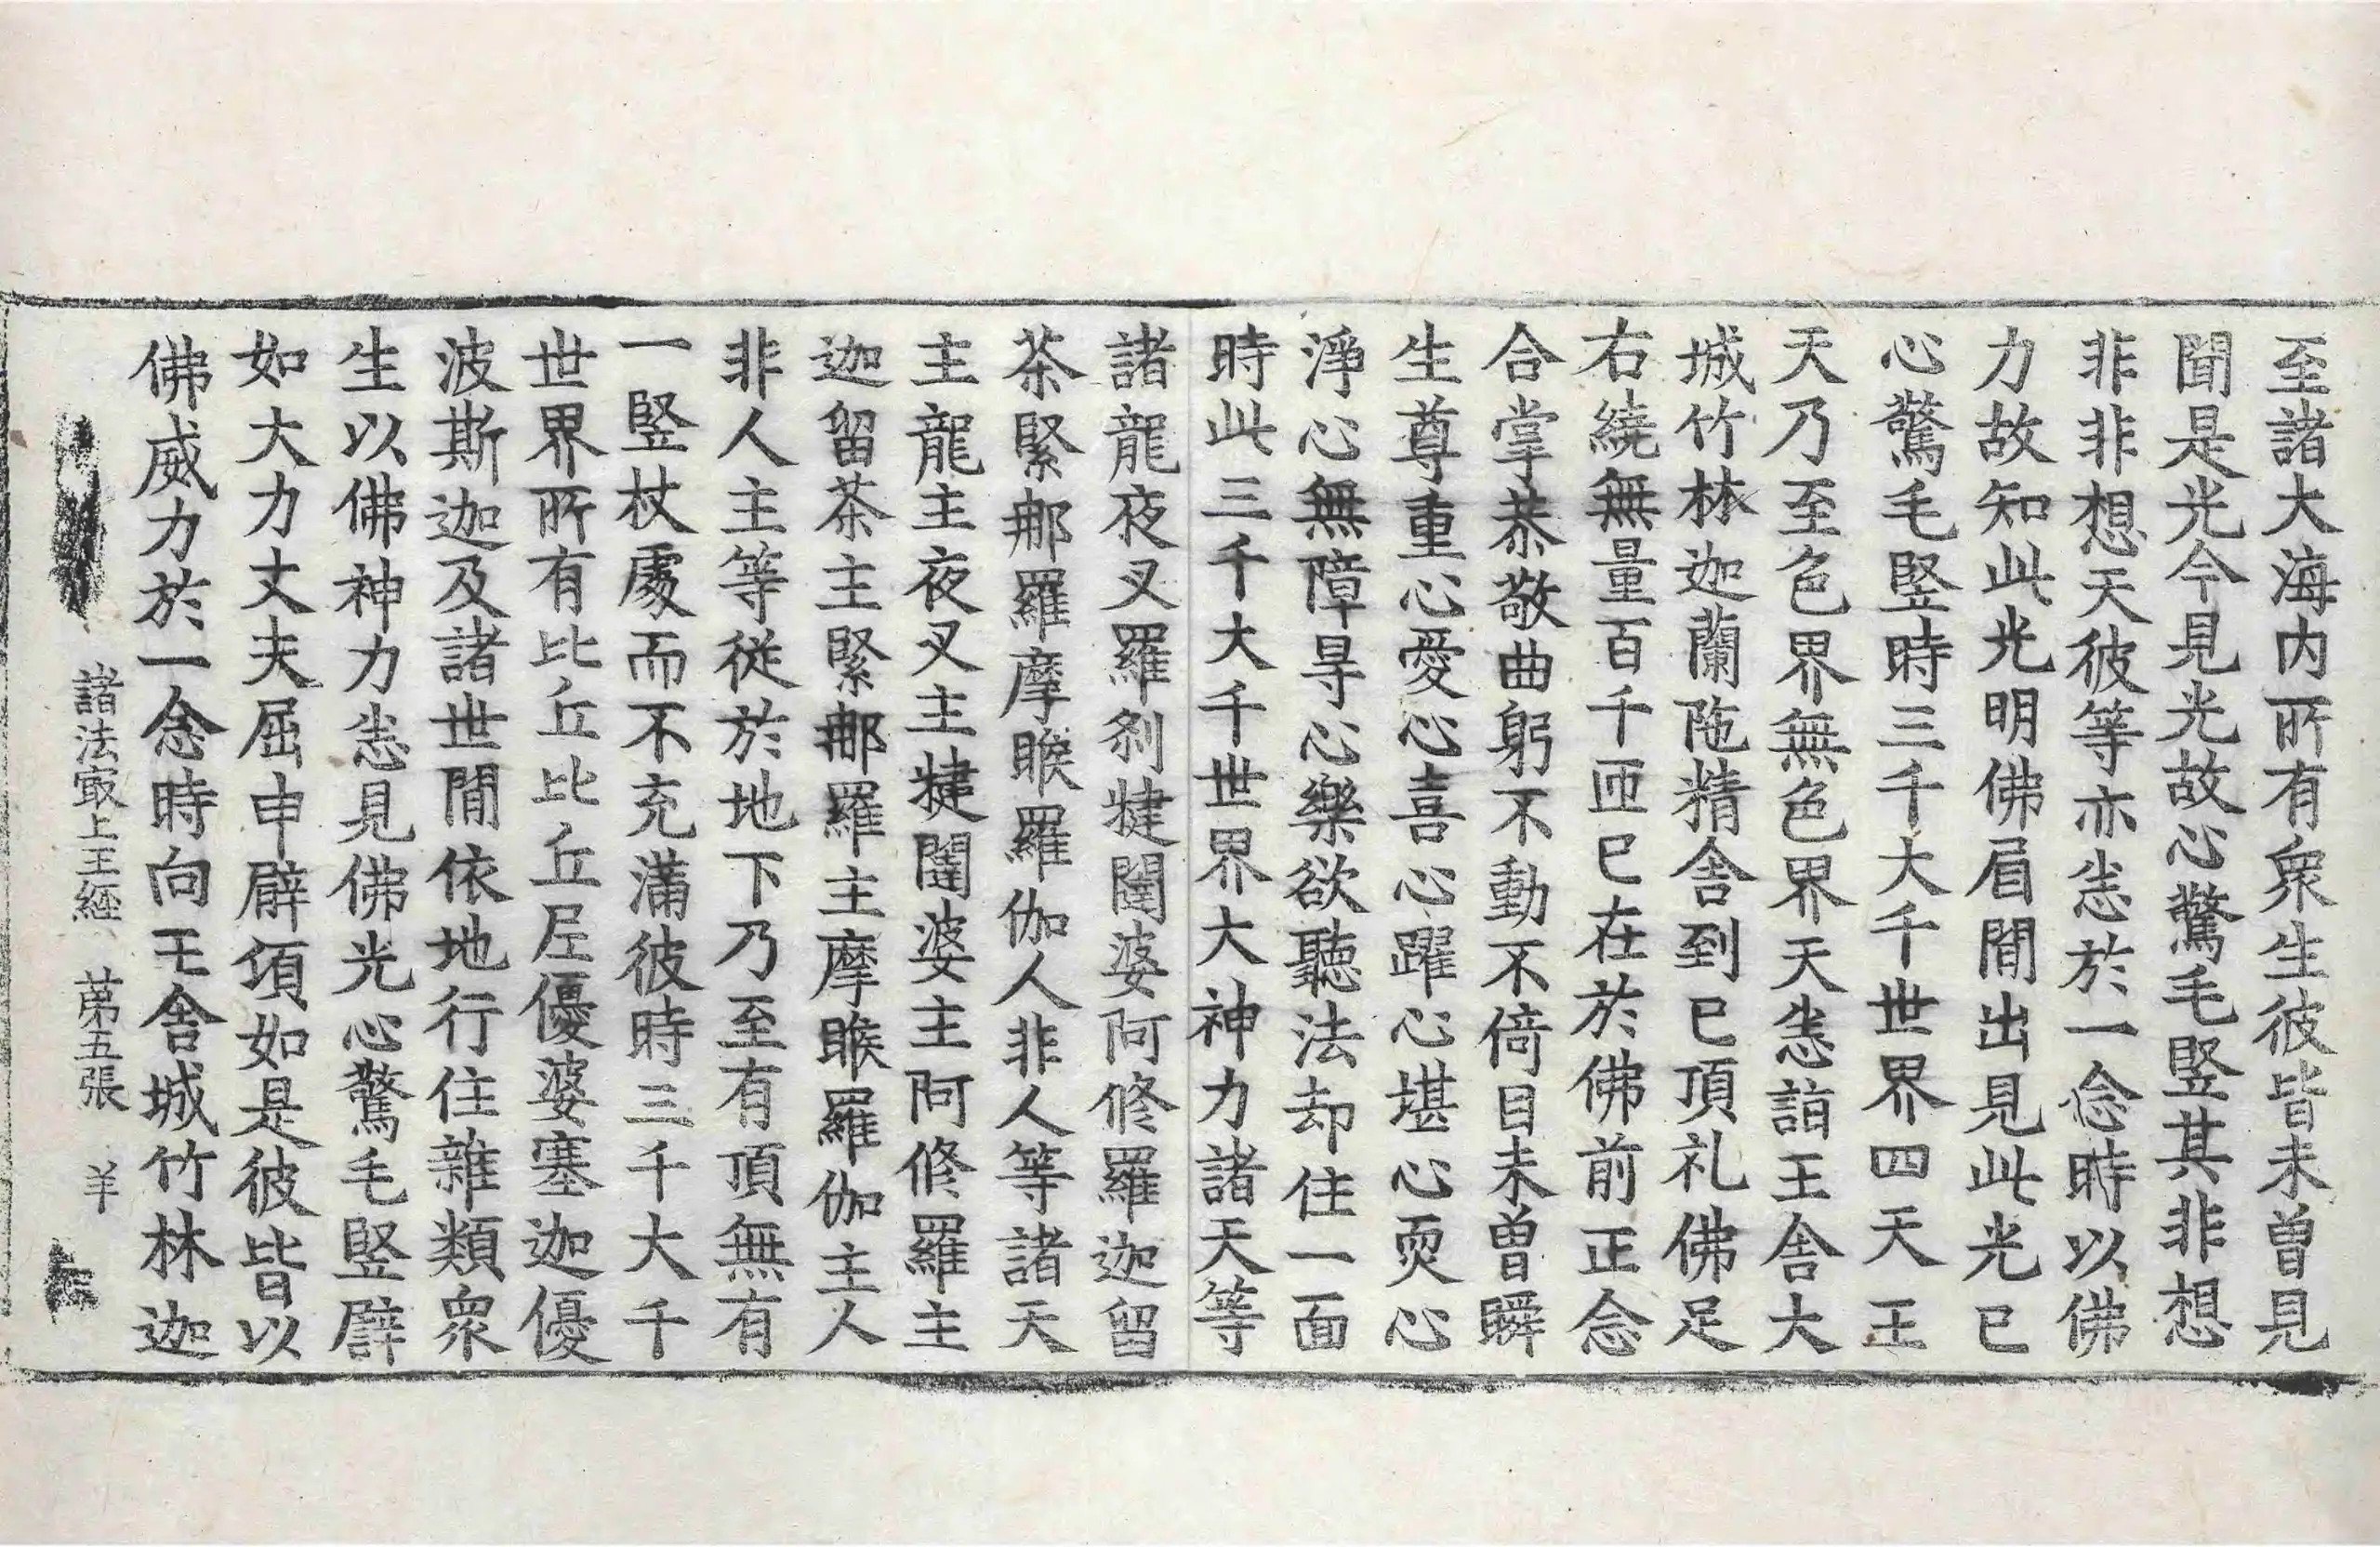 至諸大海内所有衆生彼皆未曽見
聞是光今見光故心驚毛竪其非想
非非想天彼等亦恙於一念時以佛
力故知此光明佛眉間出見此光已
心驚毛竪時三千大千世界四天王
天乃至色界無色界天恙詣王舎大
城竹林迦蘭陁精舎到已頂礼佛足
右繞無量百千匝已在於佛前正念
合掌恭敬曲躬不動不倚目未曽瞬
生尊重心愛心喜心躍心堪心耎心
淨心無障㝵心樂欲聽法却住一面
時此三千大千世界大神力諸天等
諸龍夜叉羅刹揵闥婆阿修羅迦留
茶緊那羅摩睺羅伽人非人等諸天
主龍主夜叉主揵闥婆主阿修羅主
迦留茶主緊那羅主摩睺羅伽主人
非人主等從於地下乃至有頂無有
一竪杖處而不充滿彼時三千大千
世界所有比丘比丘尼優婆塞迦優
波斯迦及諸世間依地行住雜類衆
生以佛神力恙見佛光心驚毛竪譬
如大力丈夫屈申臂項如是彼皆以
佛威力於一念時向王舎城竹林迦
諸法冣上王經 苐五張 羊